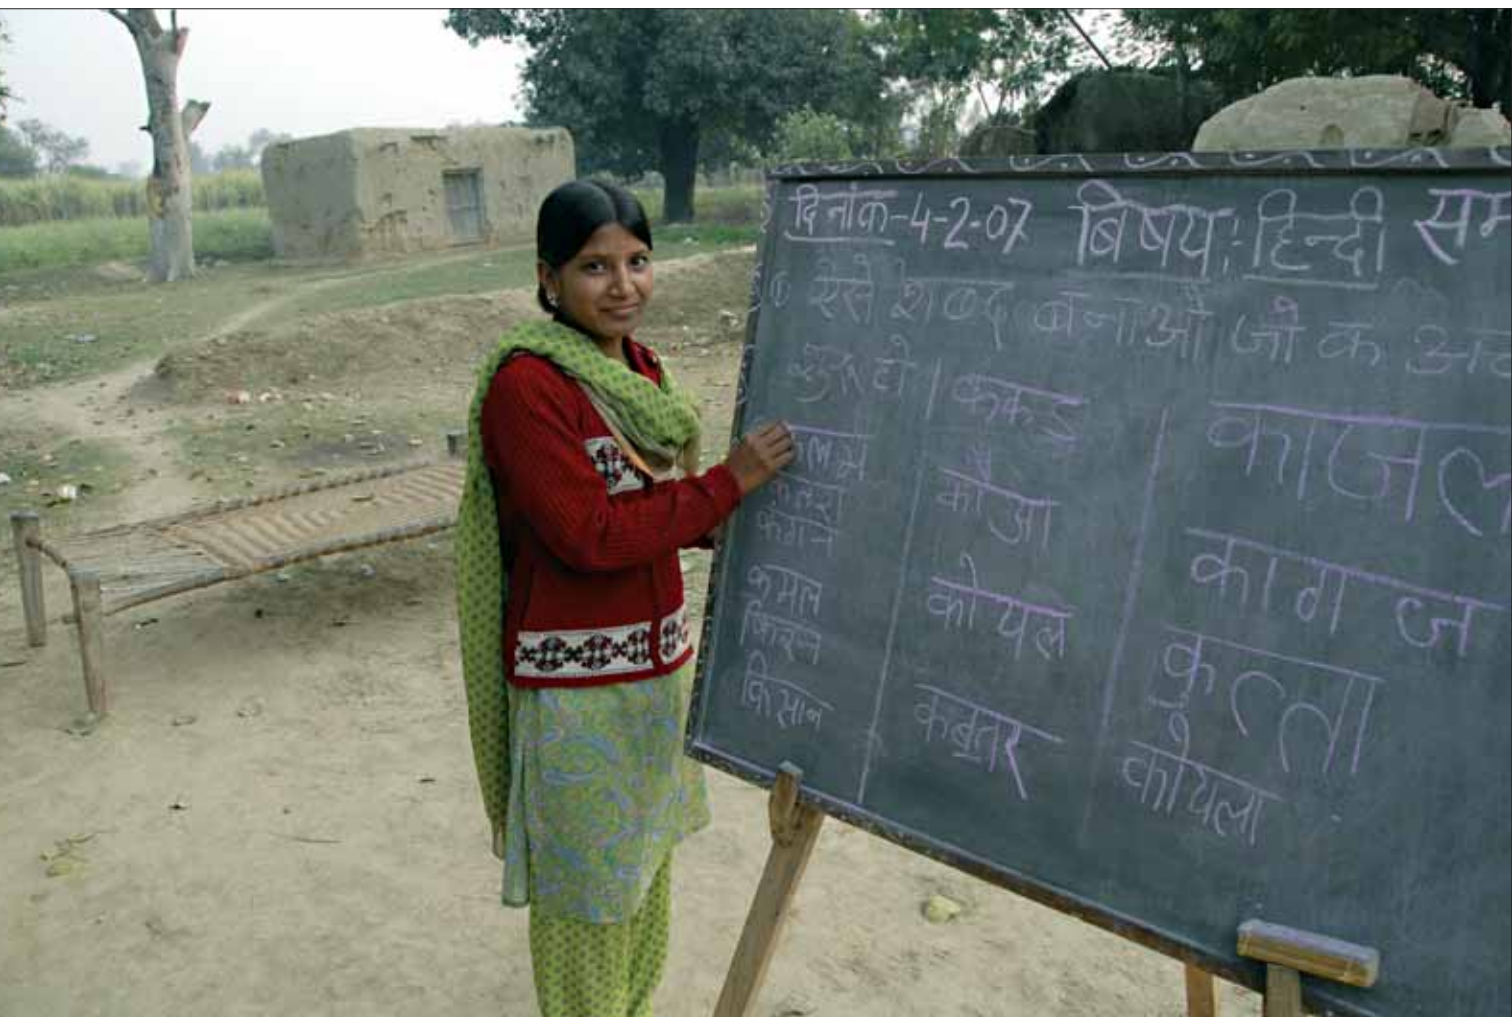 दिनांक-4-2-07 बिषय:-हिन्दी सम
ऐसे शब्द बनाओ जो क अ
शुरू हो।
कलम
कमल
किसान
ककड
कौआ
कोयल
कबूतर
काजल
कागज
कुत्ता
कोयला